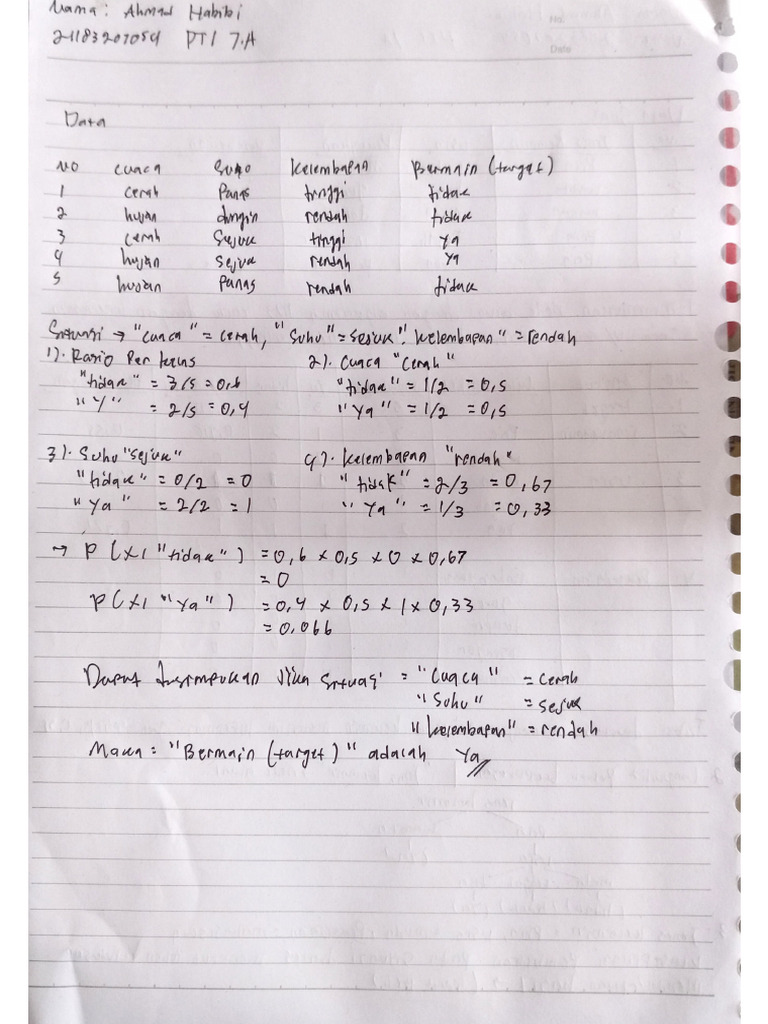 Nama : Ahmad Habibi
21183207054 PTI 7.A
No
Date
Data
NO cuaca Suho Kelembapan Bermain (target)
1 cerah Panas tinggi tidak
2 hujan dingin rendah tidak
3 cerah Sejuk tinggi Ya
4 hujan sejuk rendah Ya
5 hujan Panas rendah tidak
Situasi → "Cuaca" = cerah, "Suhu" = sejuk". Kelembapan" = rendah
1). Rasio Per kelas 2). Cuaca "Cerah"
"tidak" = 3/5 = 0,6 "tidak" = 1/2 = 0,5
"Y" = 2/5 = 0,4 "Ya" = 1/2 = 0,5
3). Suhu "sejuk" 4). Kelembapan "rendah"
"tidak" = 0/2 = 0 "tidak" = 2/3 = 0,67
"Ya" = 2/2 = 1 "Ya" = 1/3 = 0,33
→ P (X| "tidak") = 0,6 x 0,5 x 0 x 0,67
= 0
P(X| "Ya") = 0,4 x 0,5 x 1 x 0,33
= 0.066
Dapat disimpulkan Jika Situasi = "Cuaca" = cerah
"Suhu" = sejuk
"Kelembapan" = rendah
Maka : "Bermain (target)" adalah Ya //